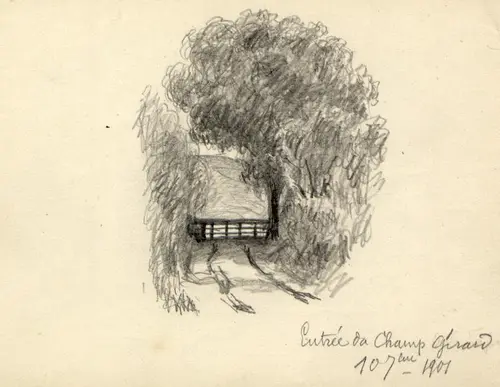 Entrée du Champ Girard
10 7bre 1901